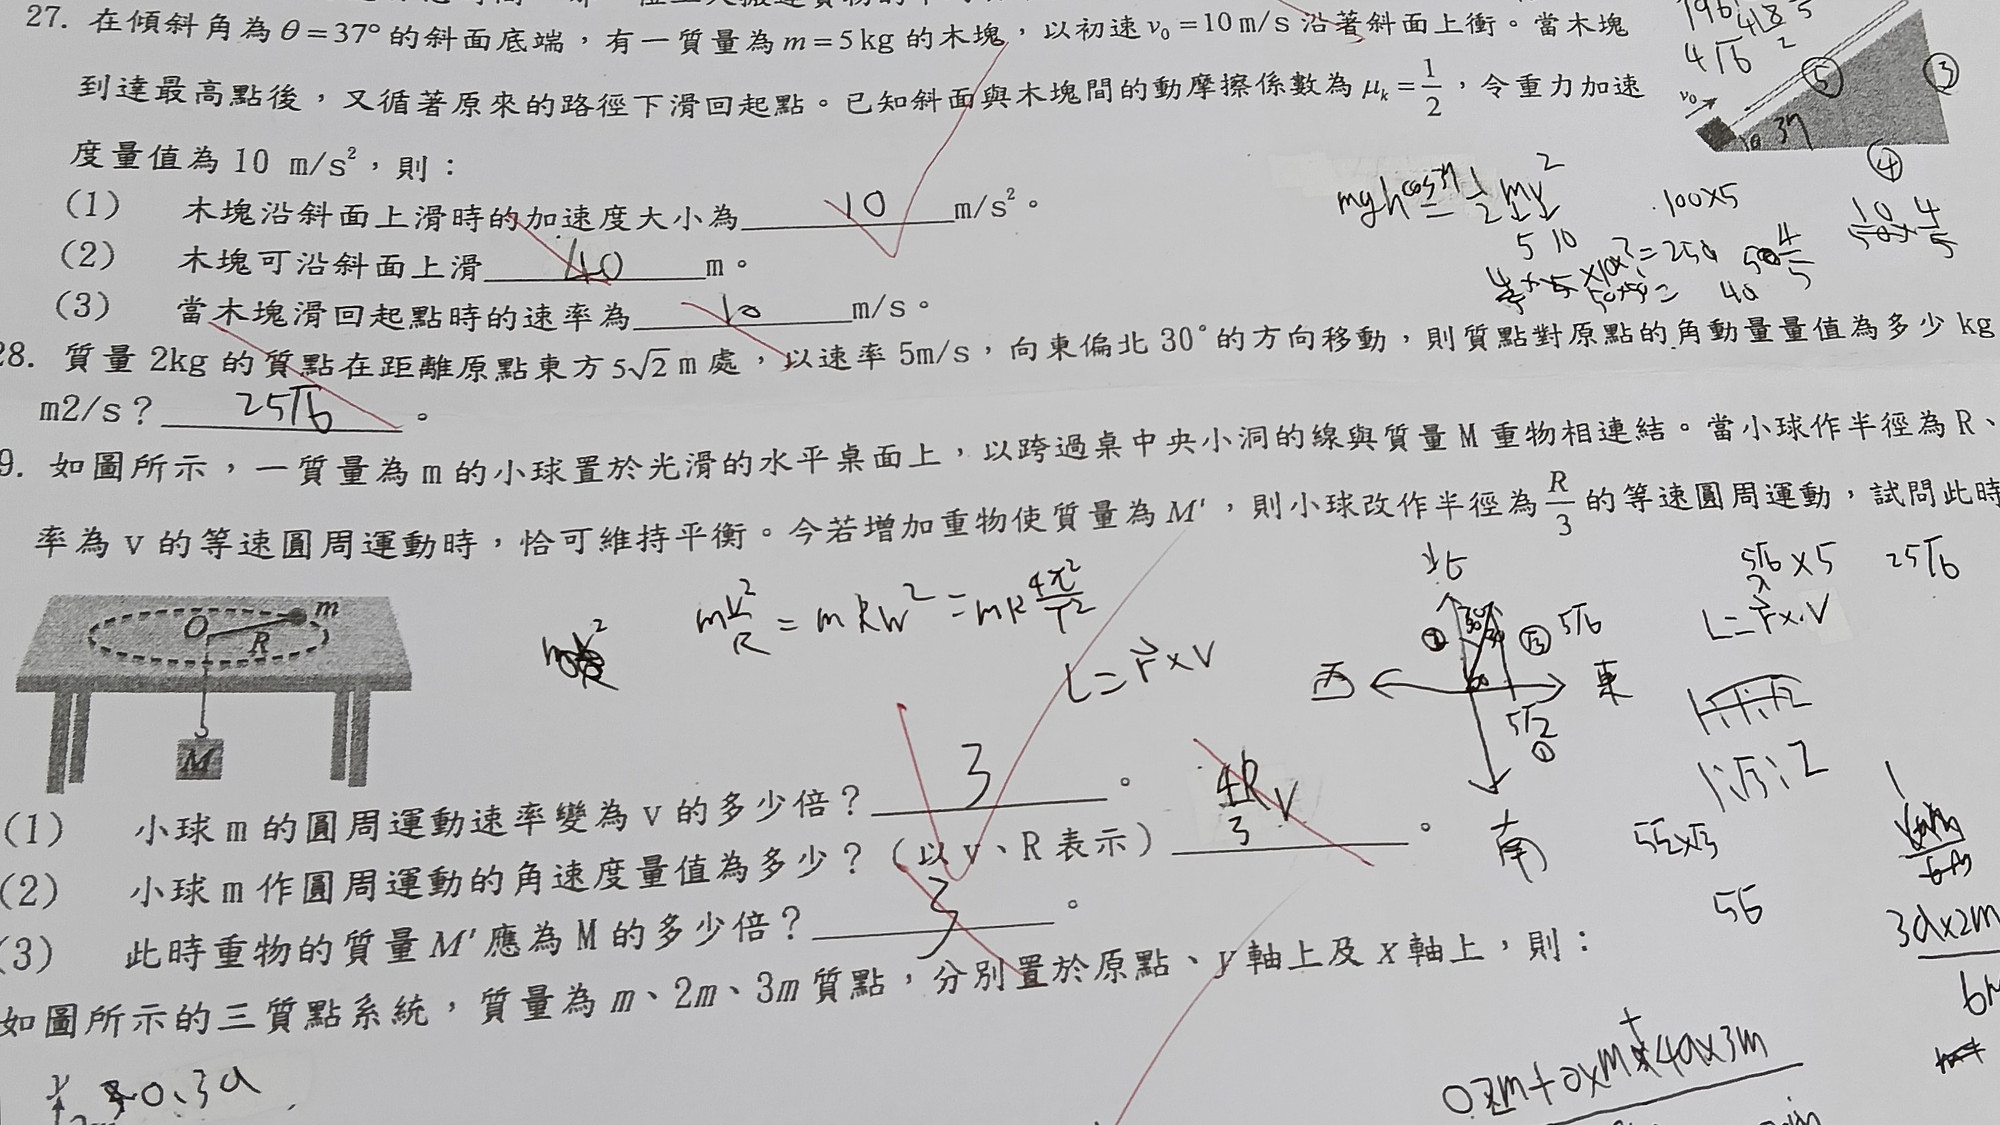 27. 在傾斜角為θ=37°的斜面底端，有一質量為m=5kg的木塊，以初速v₀=10m/s沿著斜面上衝。當木塊
到達最高點後，又循著原來的路徑下滑回起點。已知斜面與木塊間的動摩擦係數為μₖ=1/2，令重力加速
度量值為10 m/s²，則：
(1) 木塊沿斜面上滑時的加速度大小為 10 m/s²。
(2) 木塊可沿斜面上滑 40 m。
(3) 當木塊滑回起點時的速率為 10 m/s。
v₀
37
⑤
③
④
4√6
mgh cos37 = 1/2 mv²
5 10
100×5
40
28. 質量2kg的質點在距離原點東方5√2m處，以速率5m/s，向東偏北30°的方向移動，則質點對原點的角動量量值為多少kg
m2/s？ 25√6 。
9. 如圖所示，一質量為m的小球置於光滑的水平桌面上，以跨過桌中央小洞的線與質量M重物相連結。當小球作半徑為R、
率為v的等速圓周運動時，恰可維持平衡。今若增加重物使質量為M'，則小球改作半徑為R/3的等速圓周運動，試問此時
O
R
m
M
mv²/R = mRw² = mR 4π²/T²
L=r⃗×V
北
西
東
南
5√6
5√2
①
5√6×5
25√6
L=r⃗×V
1:√3:2
5√2×√3
5√6
(1) 小球m的圓周運動速率變為v的多少倍？ 3 。
(2) 小球m作圓周運動的角速度量值為多少？（以v、R表示） 4R/3 v 。
(3) 此時重物的質量M'應為M的多少倍？ 3 。
3a×2m
如圖所示的三質點系統，質量為m、2m、3m質點，分別置於原點、y軸上及x軸上，則：
y
0.3a